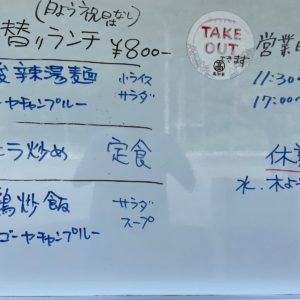 (日よう祝日はなし)
替りランチ ¥800-
辣湯麺 小ライス
サラダ
ーヤチャンプルー
ニラ炒め 定食
鶏炒飯 サラダ
スープ
ゴーヤチャンプルー
TAKE
OUT
できます
営業
11:30
17:00
休
水、木よう